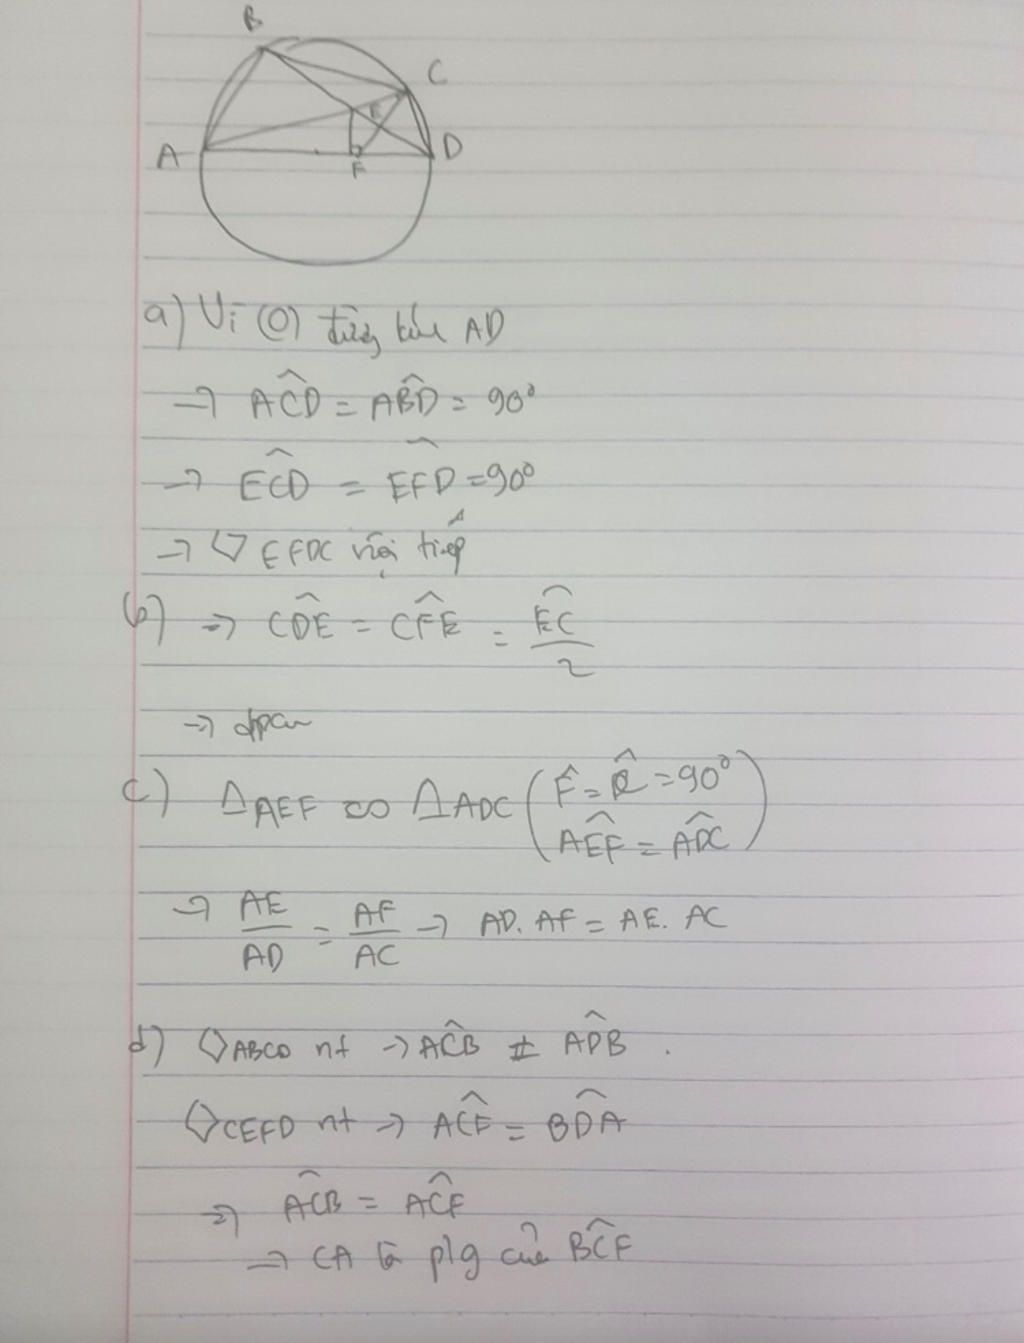 B
C
E
A
D
F
a) Vì (O) đường kính AD
→ ACD = ABD = 90°
→ ECD = EFD = 90°
→ EFDC nội tiếp
b) → CDE = CFE = EC/2
→ đpcm
c) ΔAEF ∽ ΔADC (F = C = 90°
AEF = ADC)
→ AE/AD = AF/AC → AD. AF = AE. AC
d) ABCD nt → ACB = ADB.
CEFD nt → ACF = BDA
→ ACB = ACF
→ CA là p/g của BCF